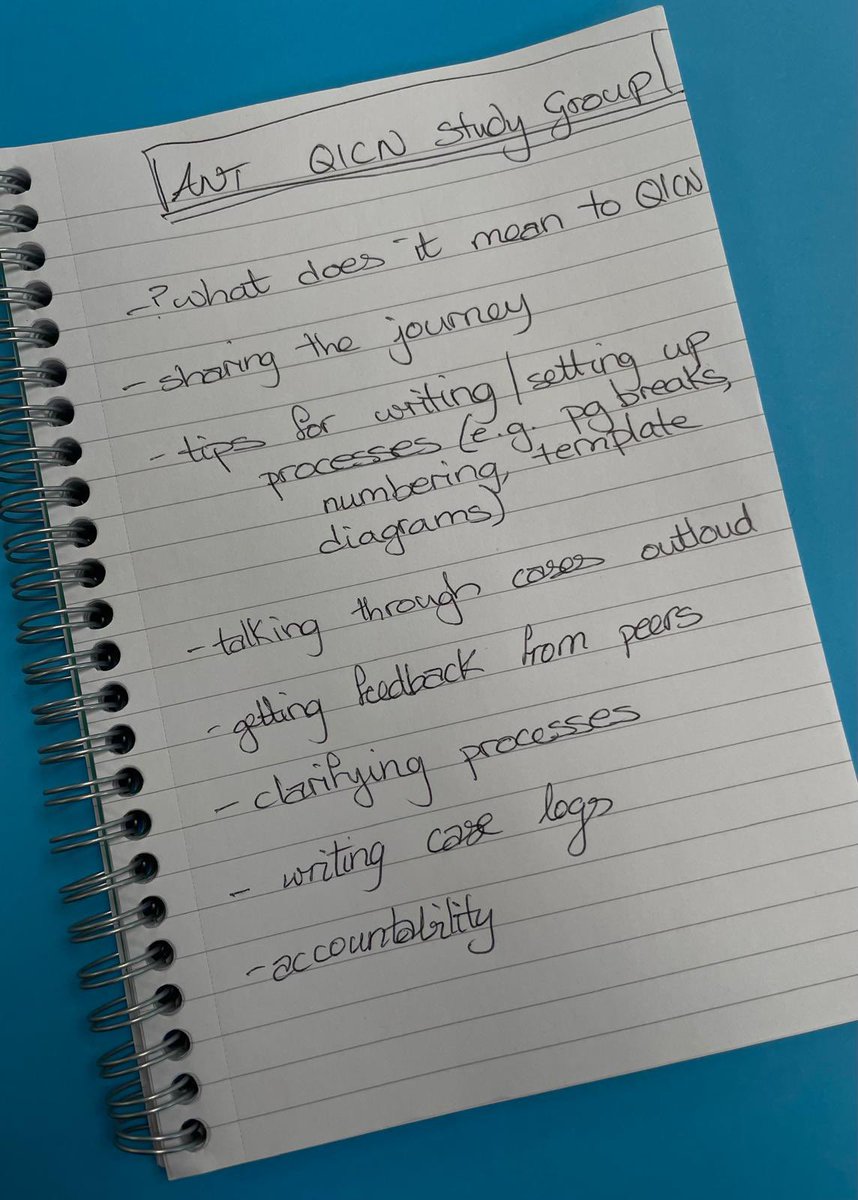 ANT QICN Study Group
-?what does it mean to QICN
- sharing the journey
- tips for writing/setting up
processes (e.g. pg breaks,
numbering, template
diagrams)
- talking through cases outloud
- getting feedback from peers
- clarifying processes
- writing case logs
- accountability